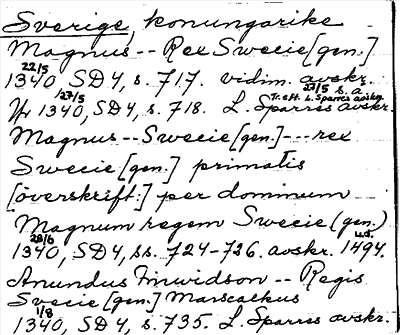 Sverige, konungarike
Magnus -- Rex Swecie [gen.]
22/5 1340, SD4, s. 717. vidim. avskr. 27/5 s. a.
27/5 1340, SD4, s. 718. L. Sparres avskr.
Tr. eft. L. Sparres avskr.
Magnus -- Swecie [gen.] --- rex
Swecie [gen.] primatis
[överskrift:] per dominum
Magnum regem Swecie (gen.)
28/6 1340, SD4, ss. 724-726. avskr. 1494. u.d.
Anundus Finwidson -- Regis
Svecie [gen.] Marscalkus
1/8 1340, SD4, s. 735. L. Sparres avskr.